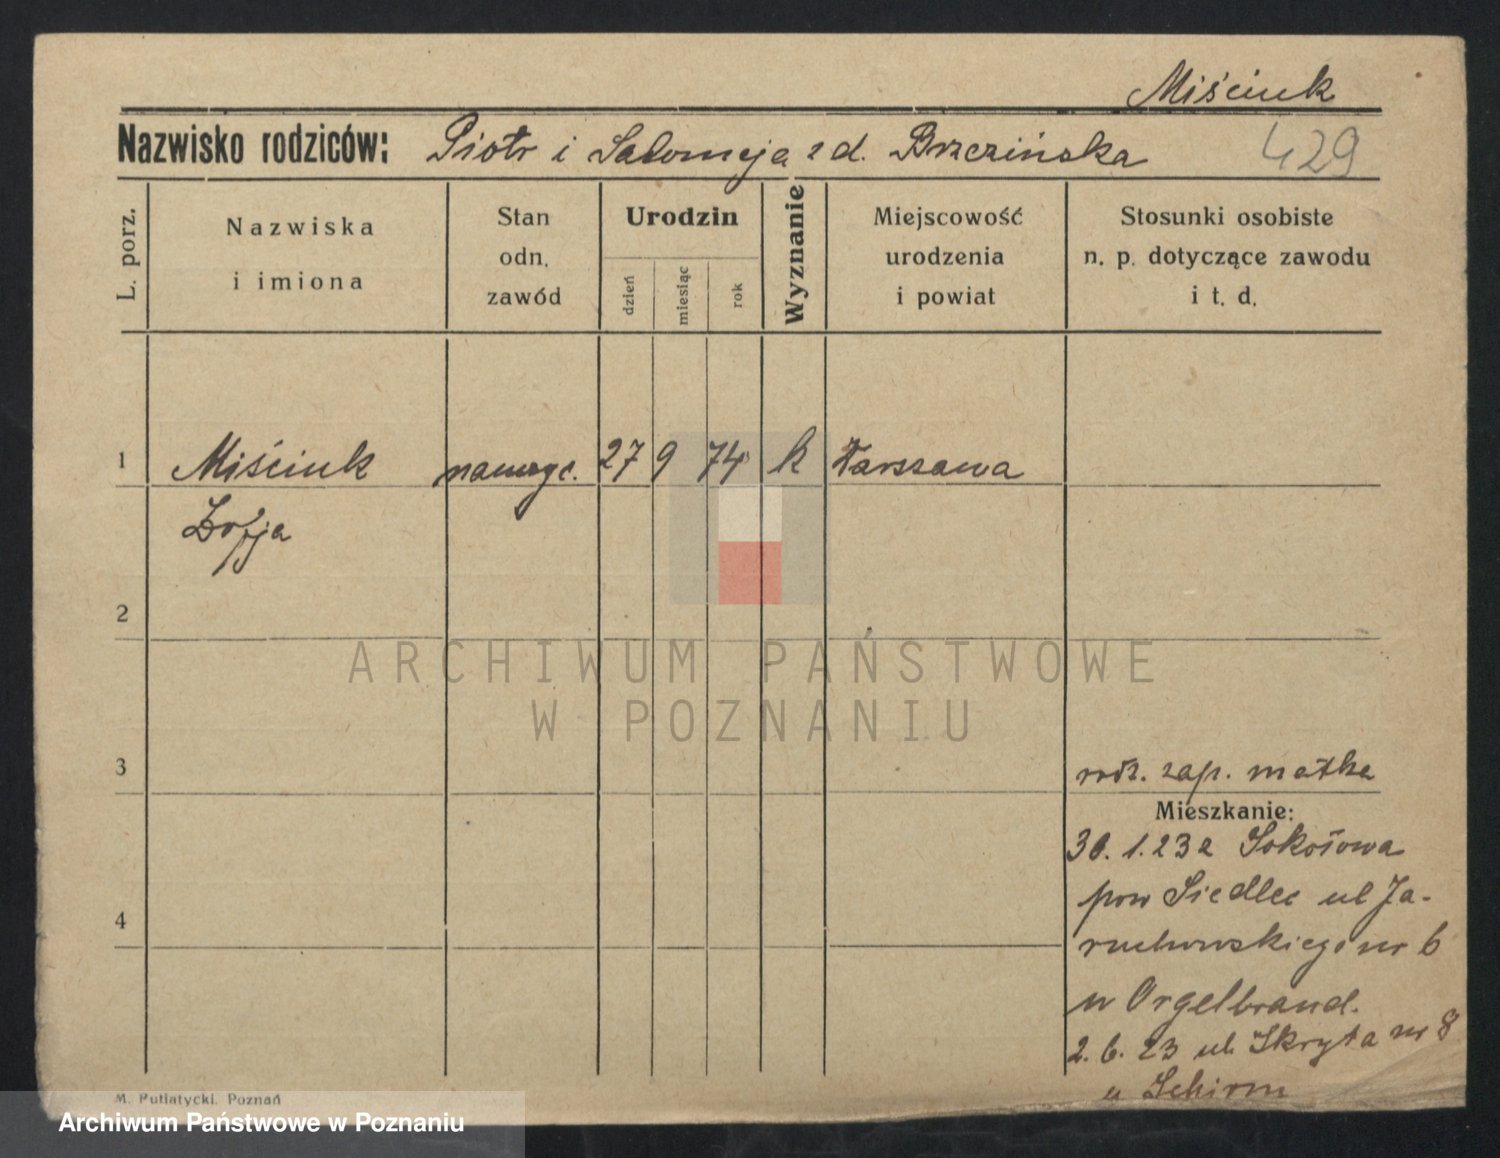 Miściuk
Nazwisko rodziców: Piotr i Salomeja z d. Brzezińska 429
L. porz.
Nazwiska
i imiona
Stan
odn.
zawód
Urodzin
dzień
miesiąc
rok
Wyznanie
Miejscowość
urodzenia
i powiat
Stosunki osobiste
n. p. dotyczące zawodu
i t. d.
1 Miściuk nauczyc. 27 9 74 k Warszawa
Zofja
2
3
rodz. zap. matka
Mieszkanie:
30.1.23 z Sokołowa
pow Siedlec ul Ja-
ruchowskiego nr 6
u Orgelbrand.
4
2.6.23 ul Skryta nr 8
u Schirm
M. Putiatycki. Poznań
ARCHIWUM PAŃSTWOWE
W POZNANIU
Archiwum Państwowe w Poznaniu